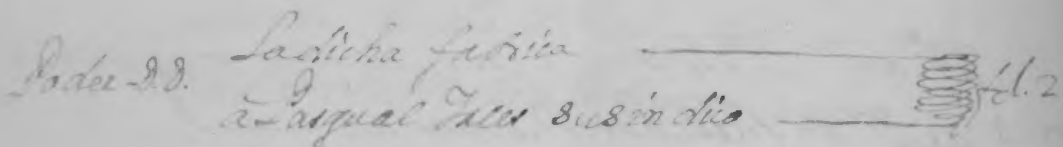 Poder D.D.
La dicha fabrica
a Pasqual Ysles su sindico
fol. 2